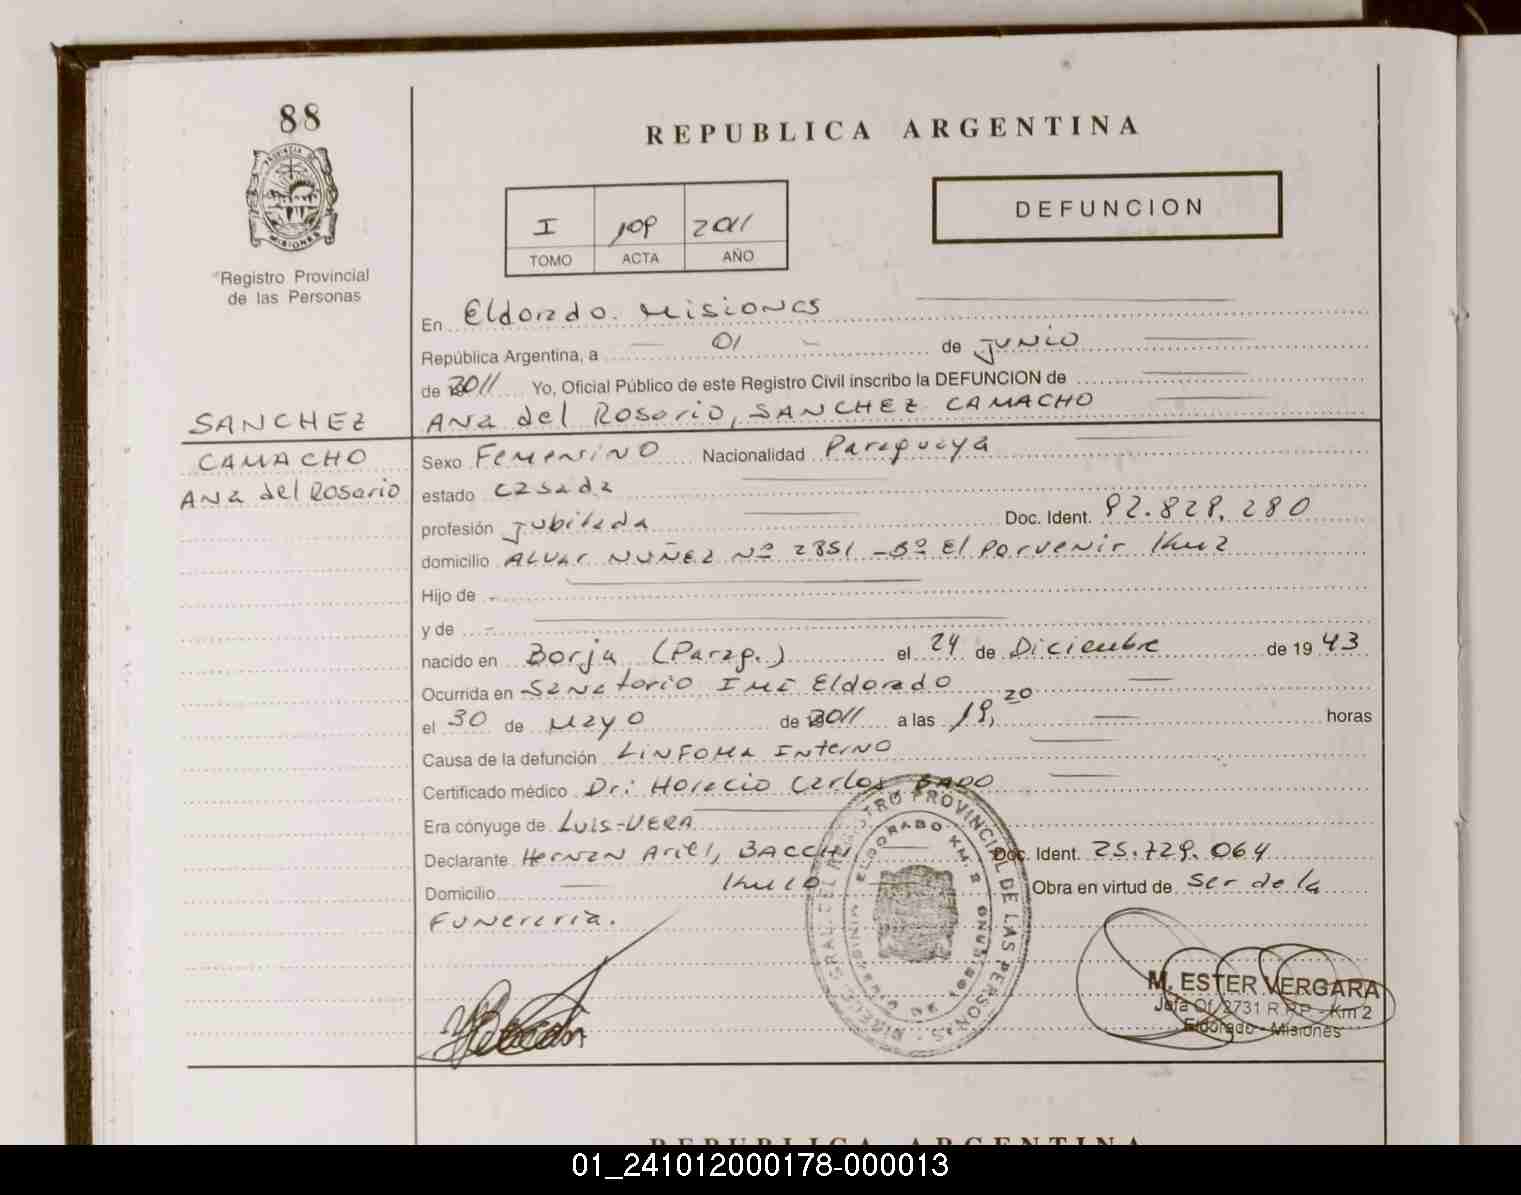 88
PROVINCIA DE MISIONES
Registro Provincial
de las Personas
REPUBLICA ARGENTINA
DEFUNCION
I 109 2011
TOMO ACTA AÑO
En Eldorado. Misiones
República Argentina, a 01 de junio
de 2011 Yo, Oficial Público de este Registro Civil inscribo la DEFUNCION de
Ana del Rosario, SANCHEZ CAMACHO
SANCHEZ
CAMACHO
Ana del Rosario
Sexo Femenino Nacionalidad Paraguaya
estado casada
profesión jubilada Doc. Ident. 92.829.280
domicilio ALVAR NUÑEZ Nº 2851 - Bº El Porvenir Km 2
Hijo de
y de
nacido en Borja (Parag.) el 24 de Diciembre de 1943
Ocurrida en Sanatorio IMC Eldorado
el 30 de Mayo de 2011 a las 19,20 horas
Causa de la defunción LINFOMA Interno
Certificado médico Dr: Horacio Carlos BADO
Era cónyuge de Luis-VERA
Declarante Hernan Ariel, BACCHI Doc. Ident. 25.729.064
Domicilio Km 10 Obra en virtud de Ser de la
Funeraria.
ELDORADO KM 2
M. ESTER VERGARA
Jefa Of. 2731 R.P.P - Km 2
Eldorado - Misiones
REPUBLICA ARGENTINA
01_241012000178-000013